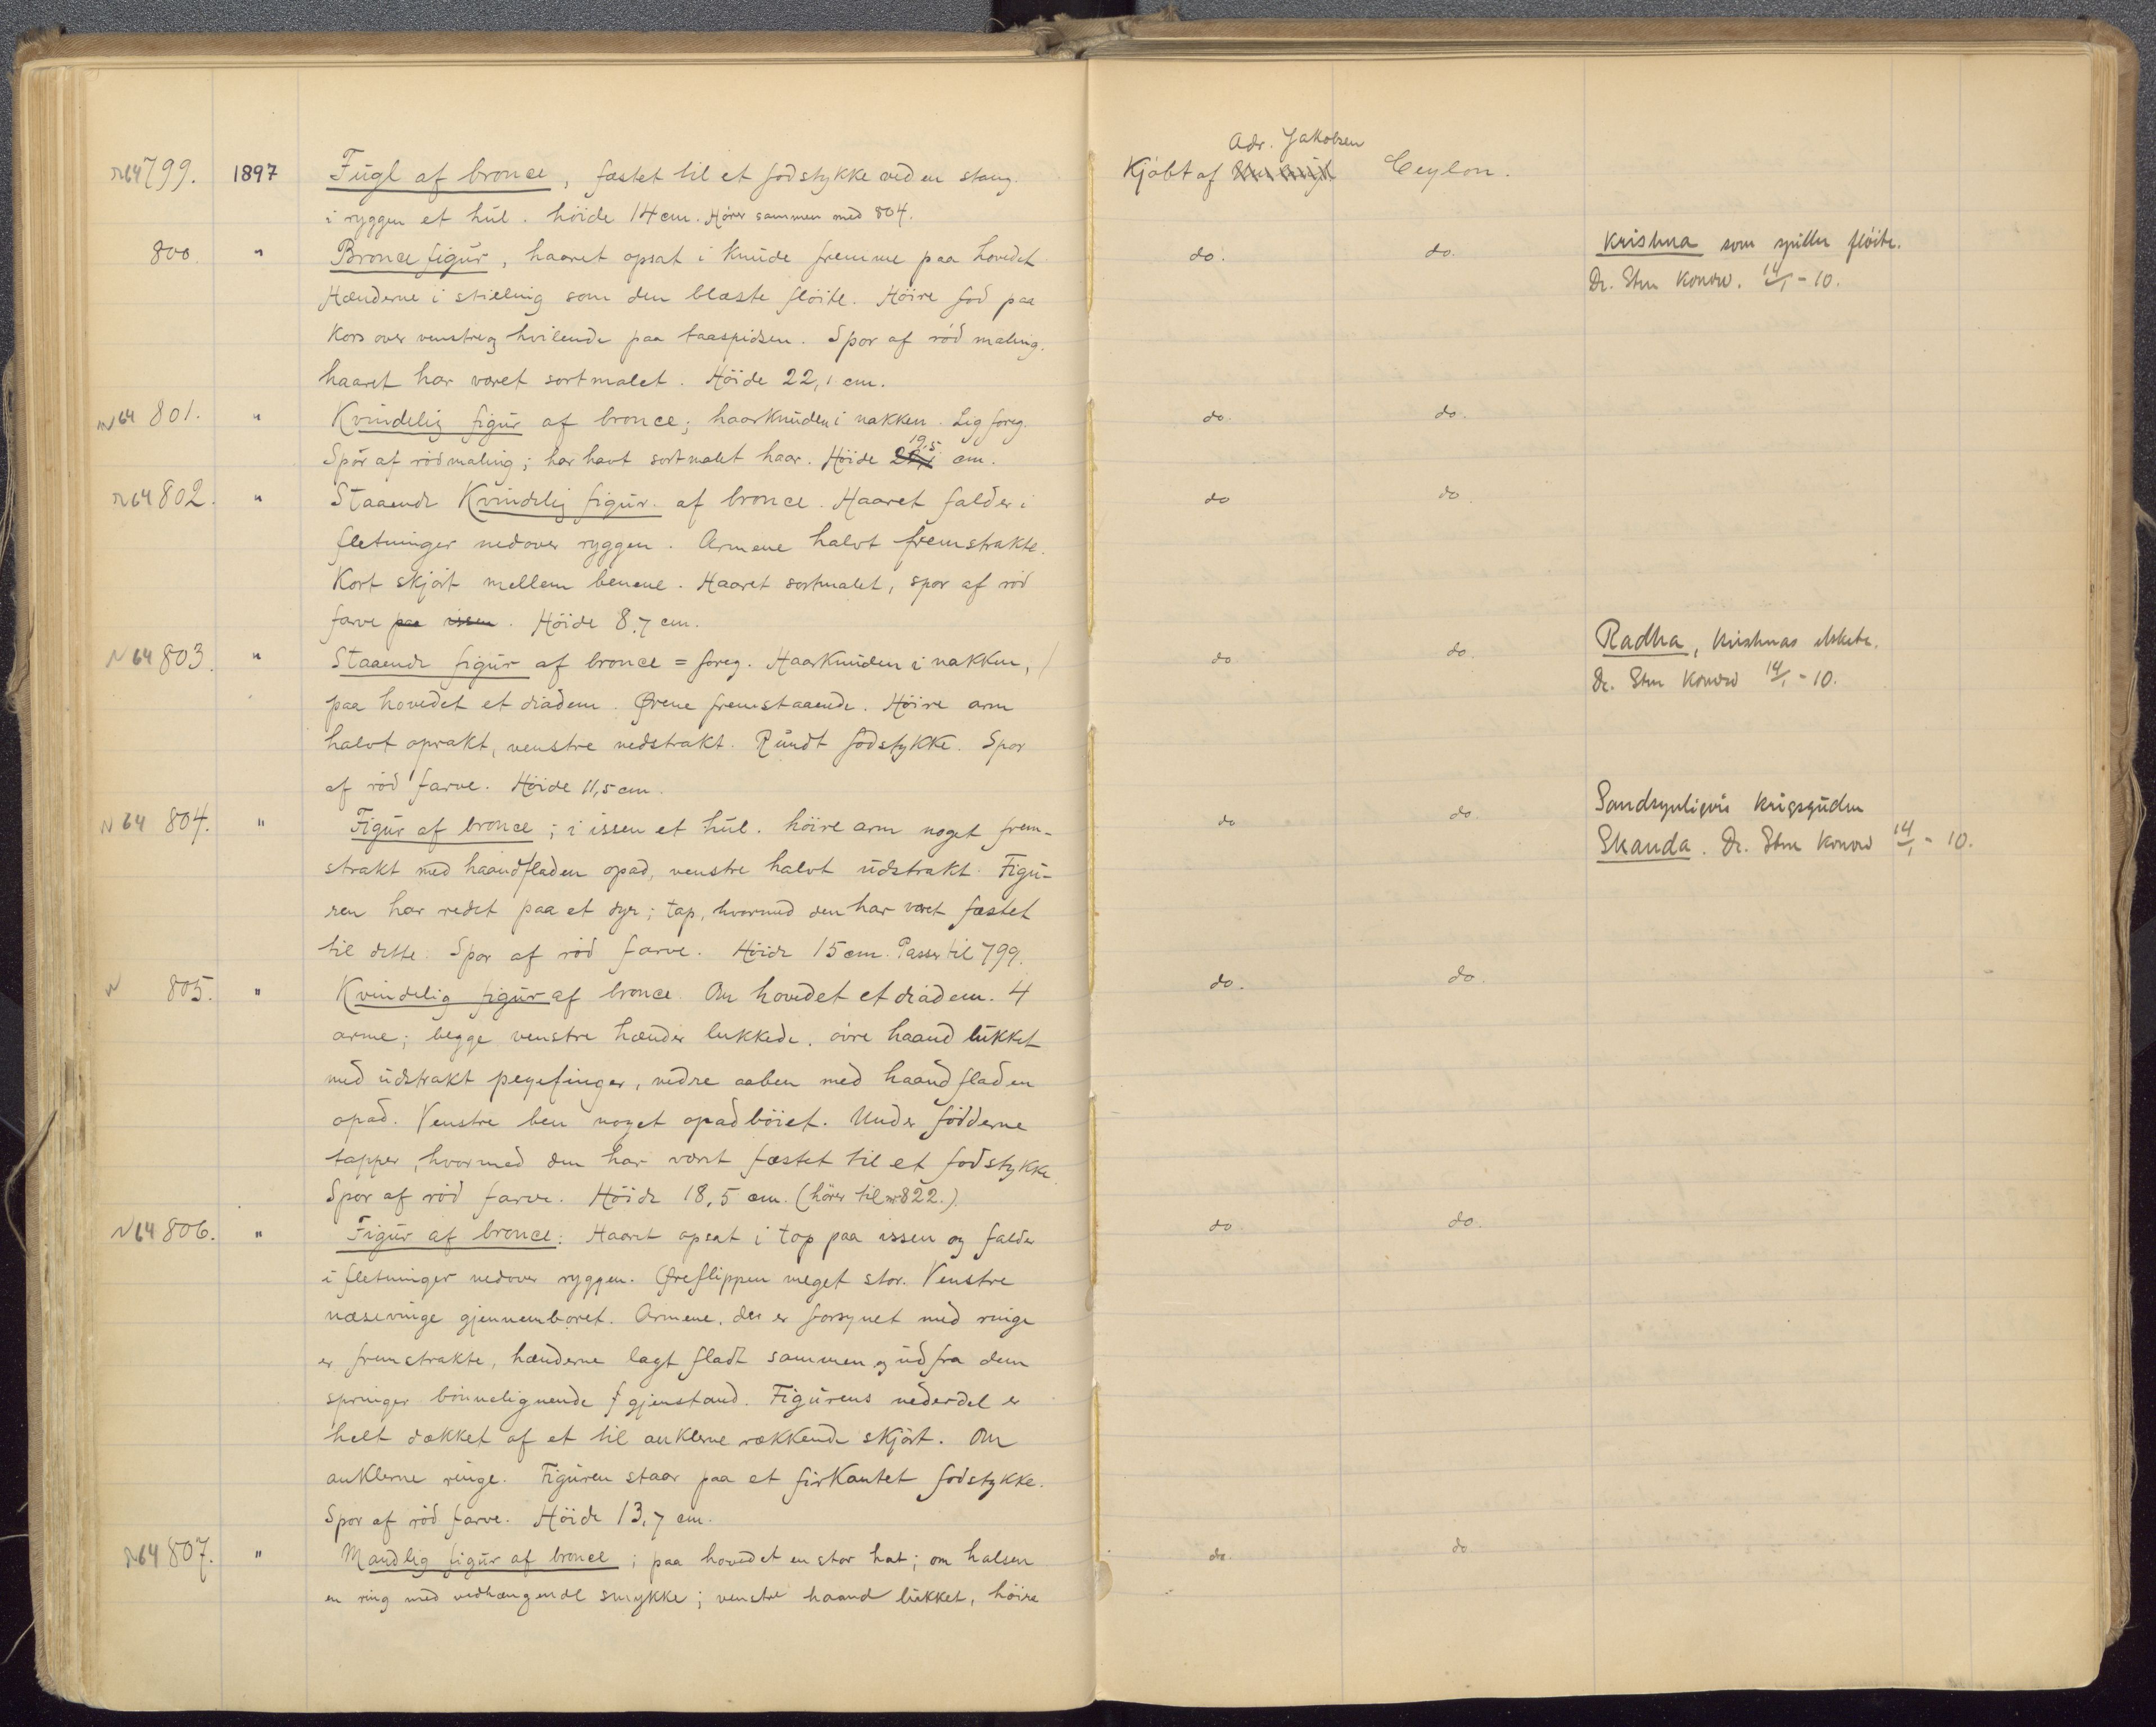 N64 799. 1897 Fugl af bronce, fæstet til et fodstykke ved en stang. Kjöbt af Adr. Jakobsen Ceylon.
i ryggen et hul. höide 14 cm. Hörer sammen med 804.
800 " Broncefigur, haaret opsat i knude fremme paa hovedet do. do. Krishna som spiller flöite.
Hænderne i stilling som den blæste flöite. Höire fod paa Dr. Sten Konow. 14/1-10.
kors over venstre og hvilende paa taaspidsen. Spor af röd maling.
haaret har været sortmalet. Höide 22,1 cm.
N64 801. " Kvindelig figur af bronce; haarknuden i nakken. Lig foreg. do. do.
Spor af rödmaling; har havt sortmalet haar. Höide 19,5 cm.
N64 802. " Staaende Kvindelig figur af bronce. Haaret falder i do do.
fletninger nedover ryggen. Armene halvt fremstrakte.
Kort skjört mellem benene. Haaret sortmalet, spor af röd
farve paa issen. Höide 8,7 cm.
N64 803. " Staaende figur af bronce = foreg. Haarknuden i nakken, do do. Radha, Krishnas elskede.
paa hovedet et diadem. Ørene fremstaaende. Höire arm Dr. Sten Konow 14/1-10.
halvt oprakt, venstre nedstrakt. Rundt fodstykke. Spor
af röd farve. Höide 11,5 cm.
N64 804. " Figur af bronce; i issen et hul. höire arm noget frem- do do. Sandsynligvis krigsguden
strakt med haandfladen opad, venstre halvt udstrakt. Figu- Skanda. Dr. Sten Konow 14/1-10.
ren har redet paa et dyr; tap, hvormed den har været fæstet
til dette. Spor af röd farve. Höide 15 cm. Passer til 799.
N 805. " Kvindelig figur af bronce. Om hovedet et diadem. 4 do. do.
arme; begge venstre hænder lukkede, övre haand lukket
med udstrakt pegefinger, nedre aaben med haandfladen
opad. Venstre ben noget opadböiet. Under födderne
tapper, hvormed den har været fæstet til et fodstykke.
Spor af röd farve. Höide 18,5 cm. (hörer til nr 822.)
N64 806. " Figur af bronce. Haaret opsat i top paa issen og falder do do.
i fletninger nedover ryggen. Øreflippen meget stor. Venstre
næsevinge gjennemboret. Armene, der er forsynet med ringe
er fremstrakte, hænderne lagt fladt sammen og ud fra dem
springer bönnelignende gjenstand. Figurens nederdel er
helt dækket af et til anklerne rækkende skjört. Om
anklerne ringe. Figuren staar paa et firkantet fodstykke.
Spor af röd farve. Höide 13,7 cm.
N64 807. " Mandlig figur af bronce; paa hovedet en stor hat; om halsen do. do
en ring med vedhængende smykke; venstre haand lukket, höire